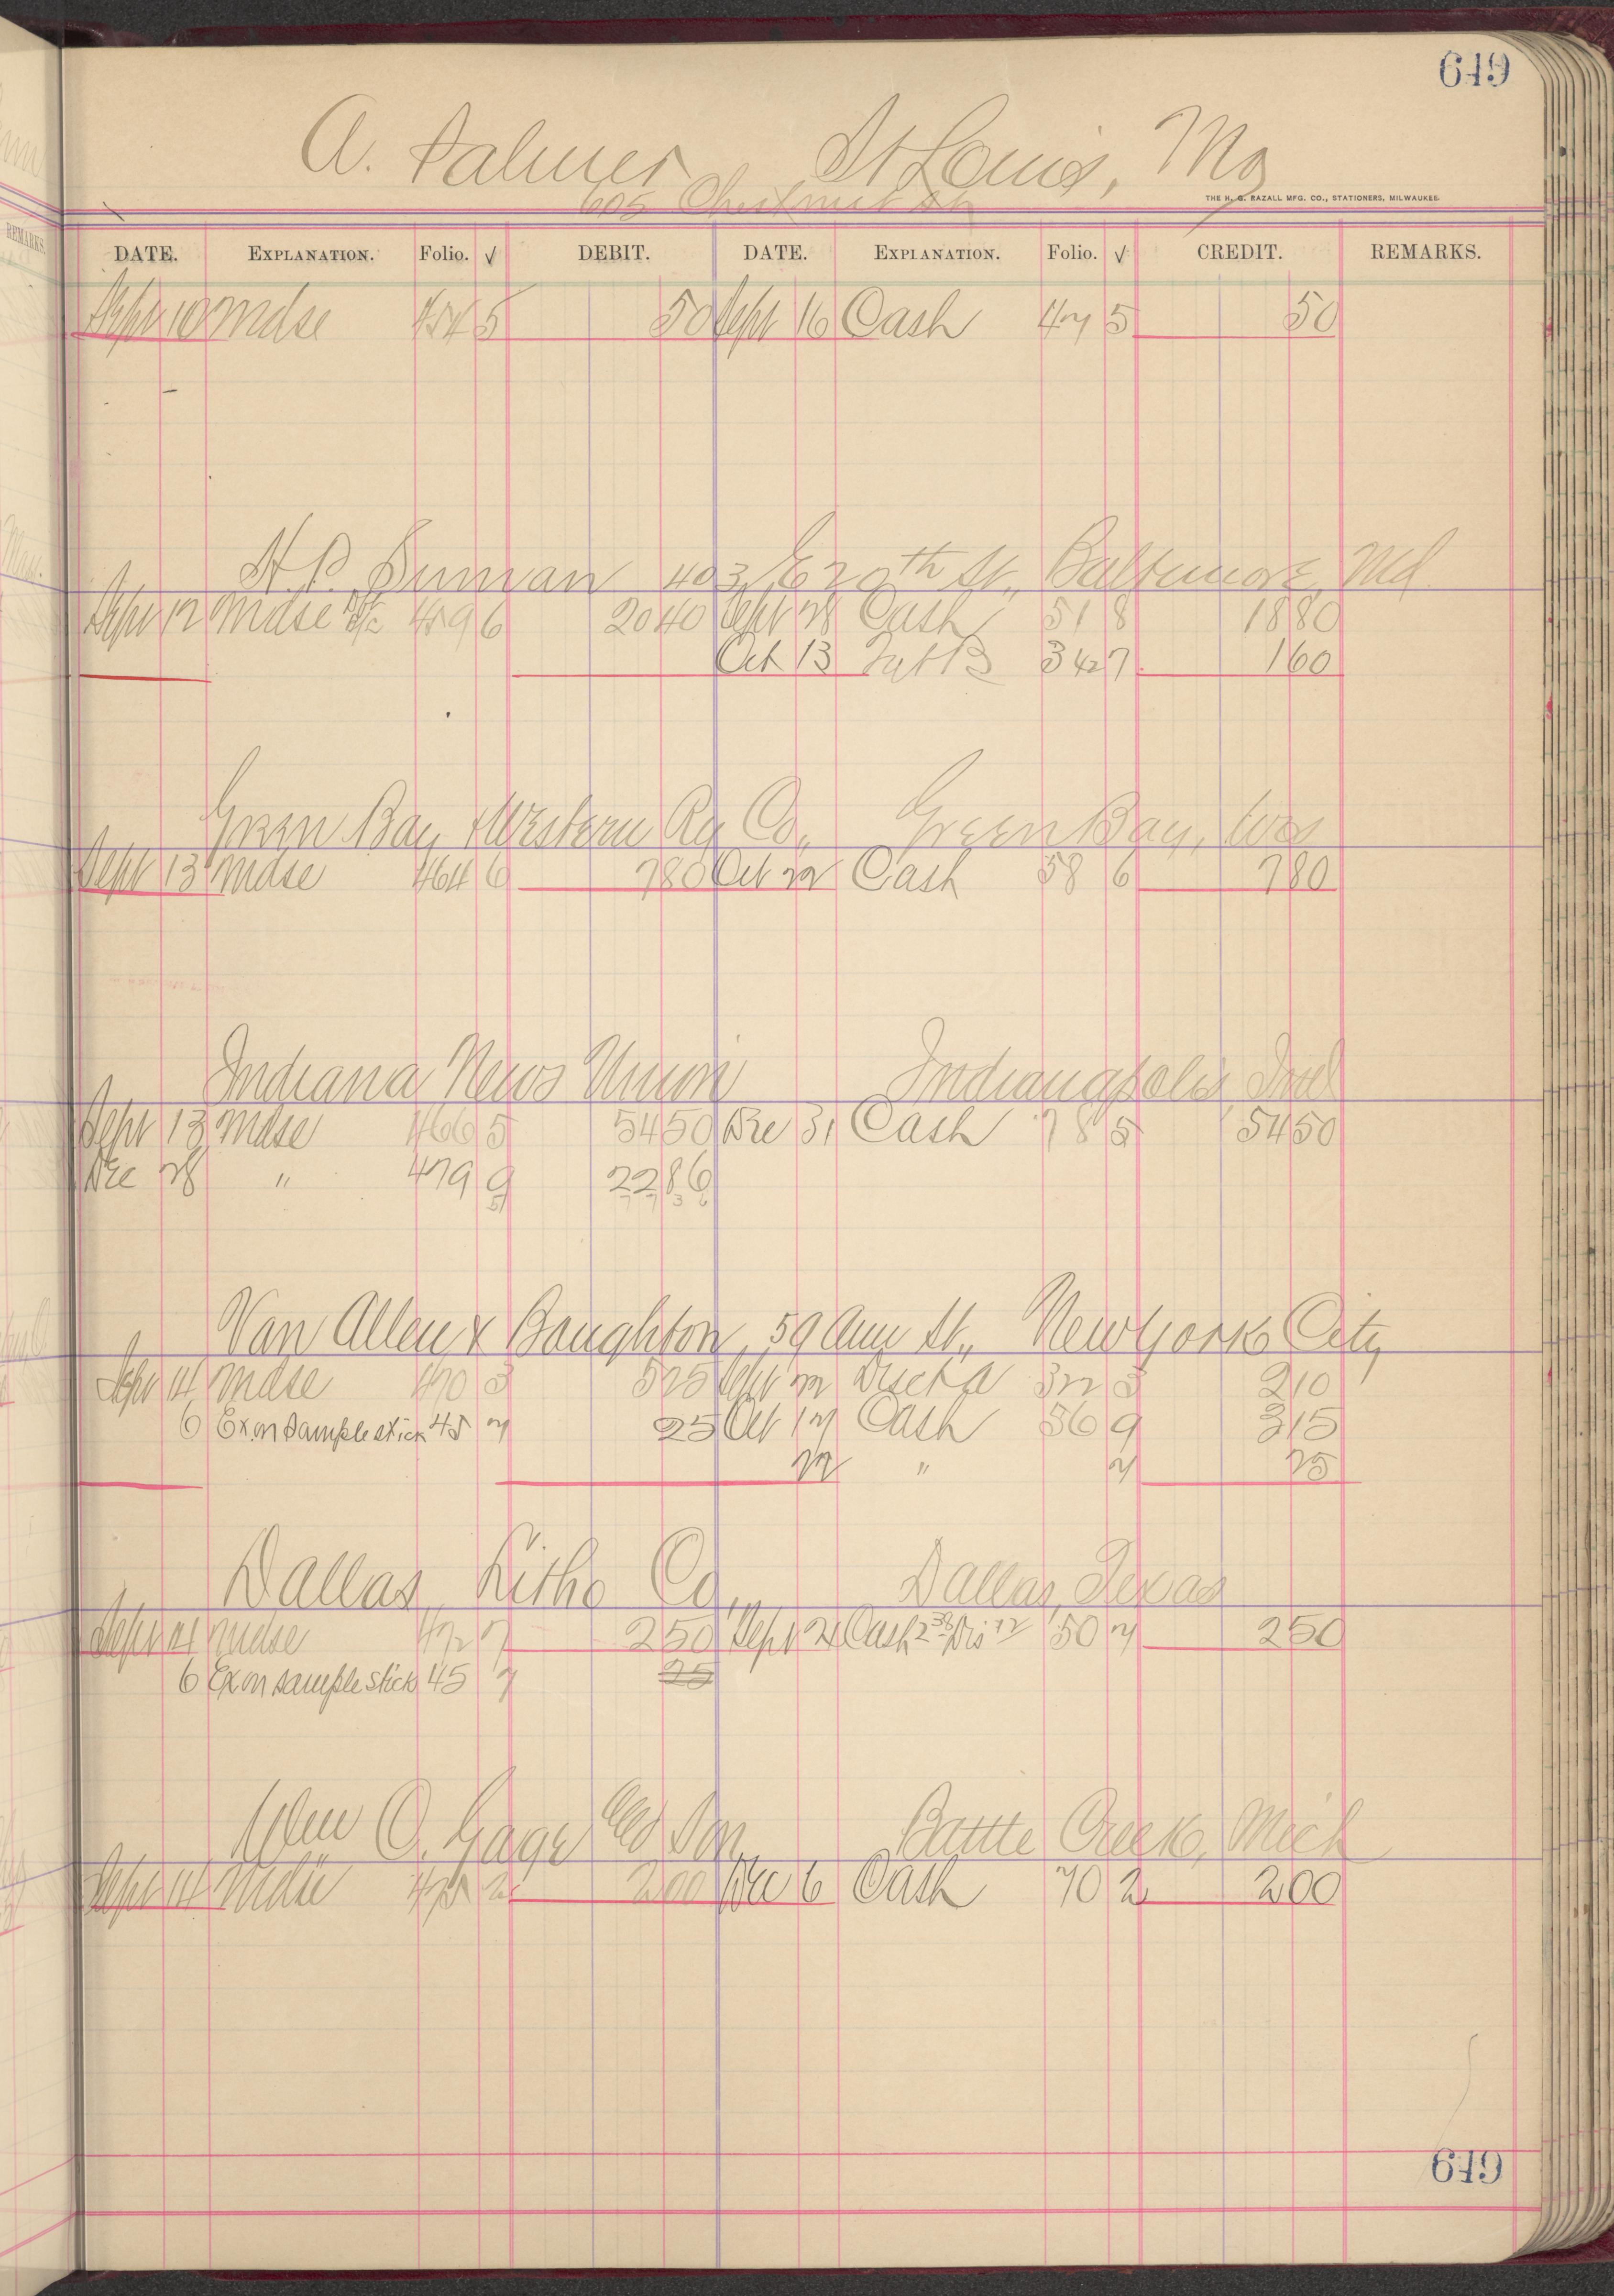 649
A. Palmer St Louis, Mo
605 Chestnut St
THE H. G. RAZALL MFG. CO., STATIONERS, MILWAUKEE.
DATE. EXPLANATION. Folio. √ DEBIT. DATE. EXPLANATION. Folio. √ CREDIT. REMARKS.
Sept 10 Mdse 454 5 50 Sept 16 Cash 47 5 50
H. P. 403 E 20th St., Baltimore, Md.
Sept 12 Mdse 459 6 20 40 Sept 28 Cash 51 8 18 80
Oct 13 342 7 1 60
Green Bay & Western Ry Co., Green Bay, Wis
Sept 13 Mdse 464 6 7 80 Oct 22 Cash 58 6 7 80
Indiana News Union Indianapolis, Ind
Sept 13 Mdse 466 5 54 50 Dec 31 Cash 78 5 54 50
Dec 28 " 479 9 22 86
Van Allen & Boughton, 59 Ann St., New York City
Sept 14 Mdse 470 3 5 25 Sept 22 322 3 2 10
6 Ex on sample stick 45 7 25 Oct 17 Cash 56 9 3 15
22 " 7 25
Dallas Litho Co., Dallas, Texas
Sept 14 Mdse 472 7 2 50 Sept 24 Cash 2 38 Dis 12 50 7 2 50
6 Ex on sample stick 45 7 25
Wm C. Gage & Son Battle Creek, Mich
Sept 14 Mdse 2 2 00 Dec 6 Cash 70 2 2 00
649